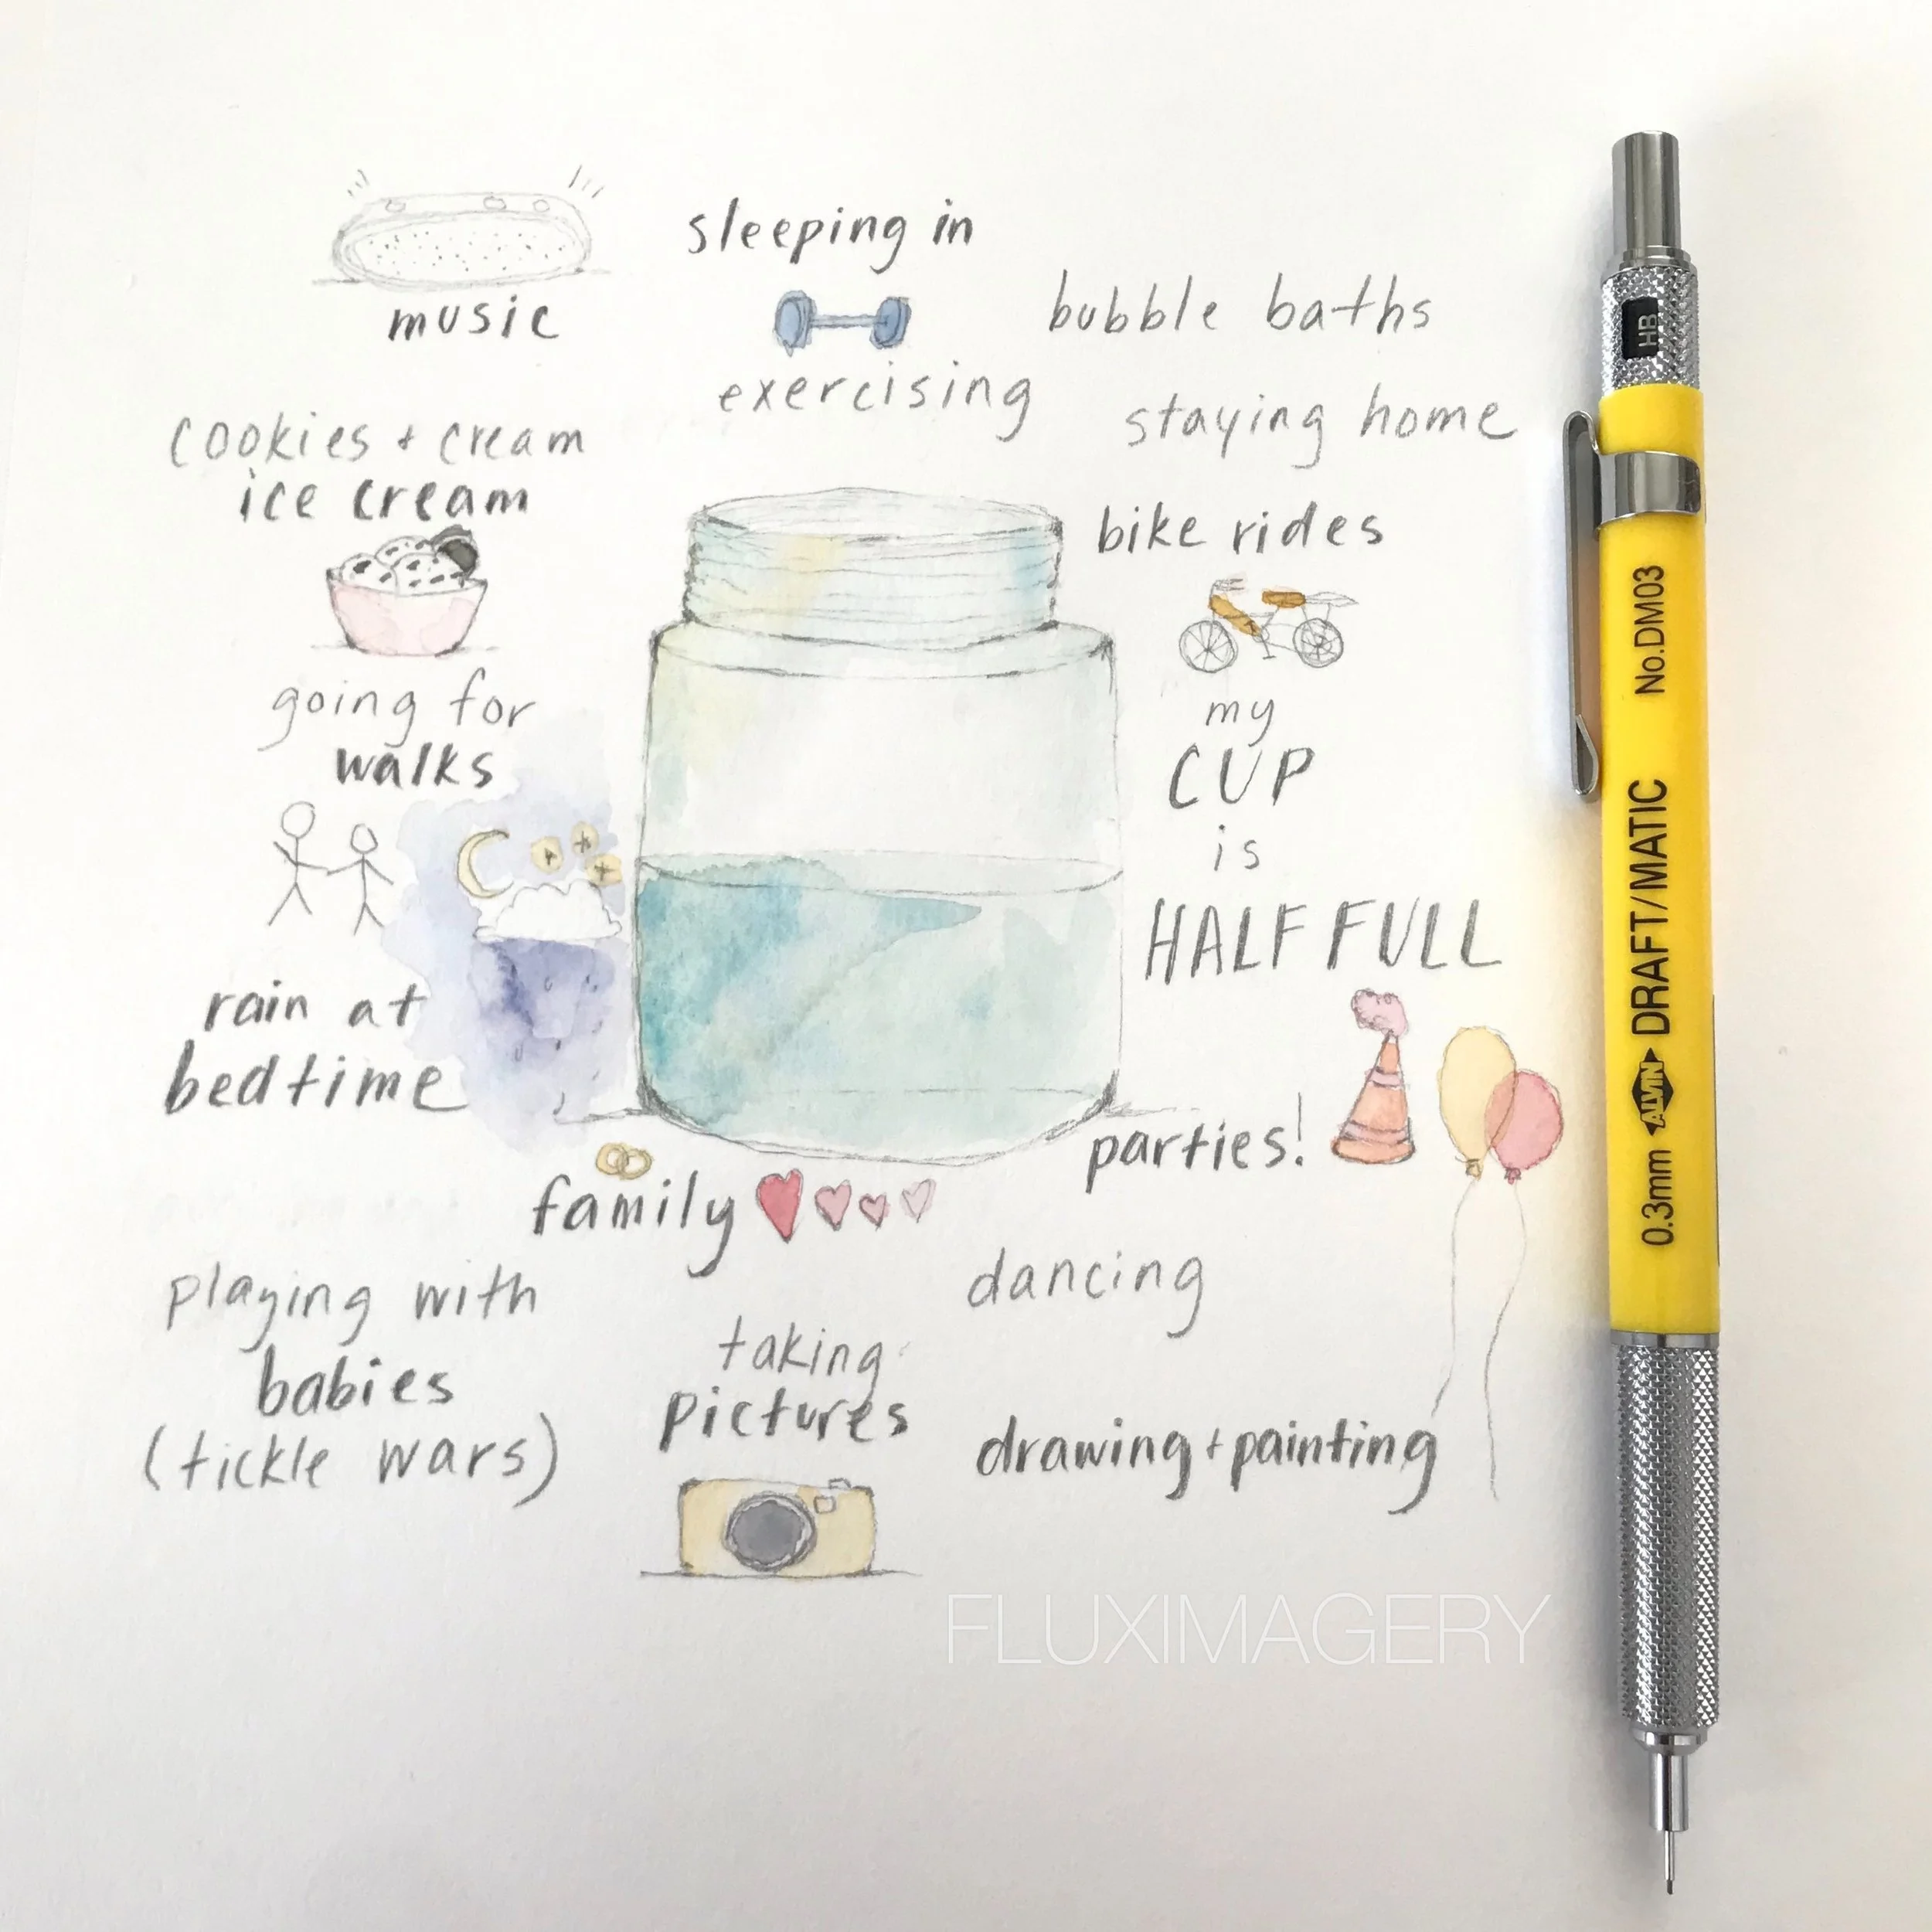 music
sleeping in
exercising
bubble baths
staying home
cookies + cream
ice cream
bike rides
going for
walks
my
CUP
is
HALF FULL
rain at
bedtime
parties!
family
playing with
babies
(tickle wars)
taking
pictures
dancing
drawing + painting
FLUXIMAGERY
HB
0.3mm ALVIN DRAFT/MATIC No.DM03